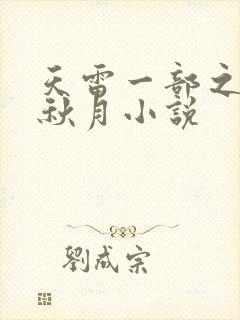 天雷一部之
秋月小說
劉成宗